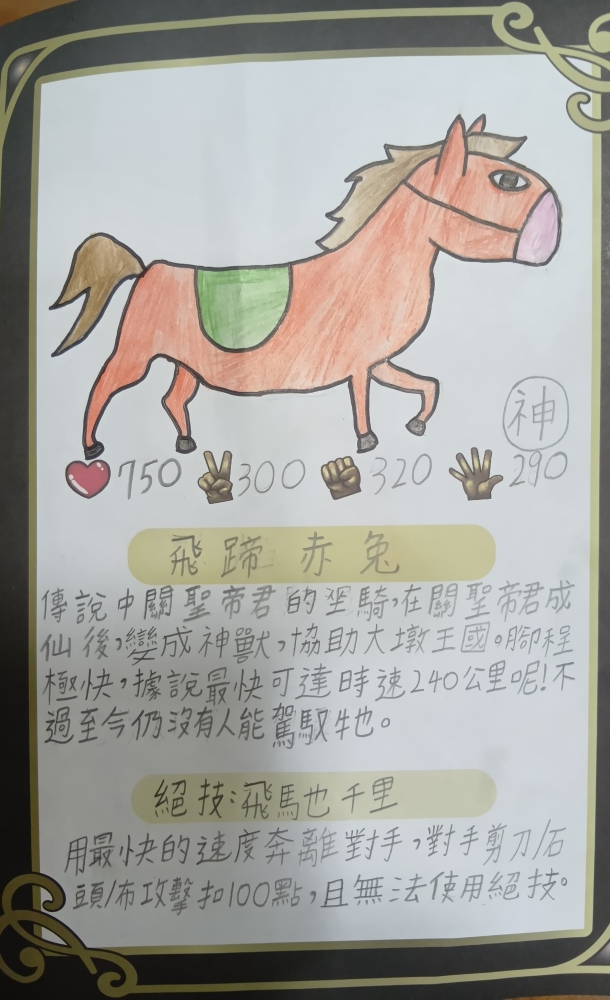 神
750 300 320 290
飛蹄赤兔
傳說中關聖帝君的坐騎,在關聖帝君成
仙後,變成神獸,協助大墩王國。腳程
極快,據說最快可達時速240公里呢!不
過至今仍沒有人能駕馭牠。
絕技:飛馬也千里
用最快的速度奔離對手,對手剪刀/石
頭/布攻擊扣100點,且無法使用絕技。